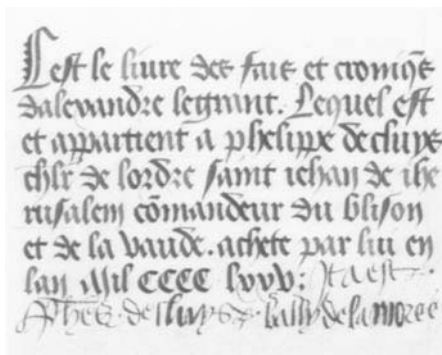 Cest le liure des fais et croniq̄s
dalexandre le grant. Lequel est
et appartient a phelippe de cluys
chlr de lordre saint iehan de ihe
rusalem cōmandeur du blison
et de la vaude. achete par lui en
lan Mil CCCC lxxv: Ita est.
de Cluys bally de la moree